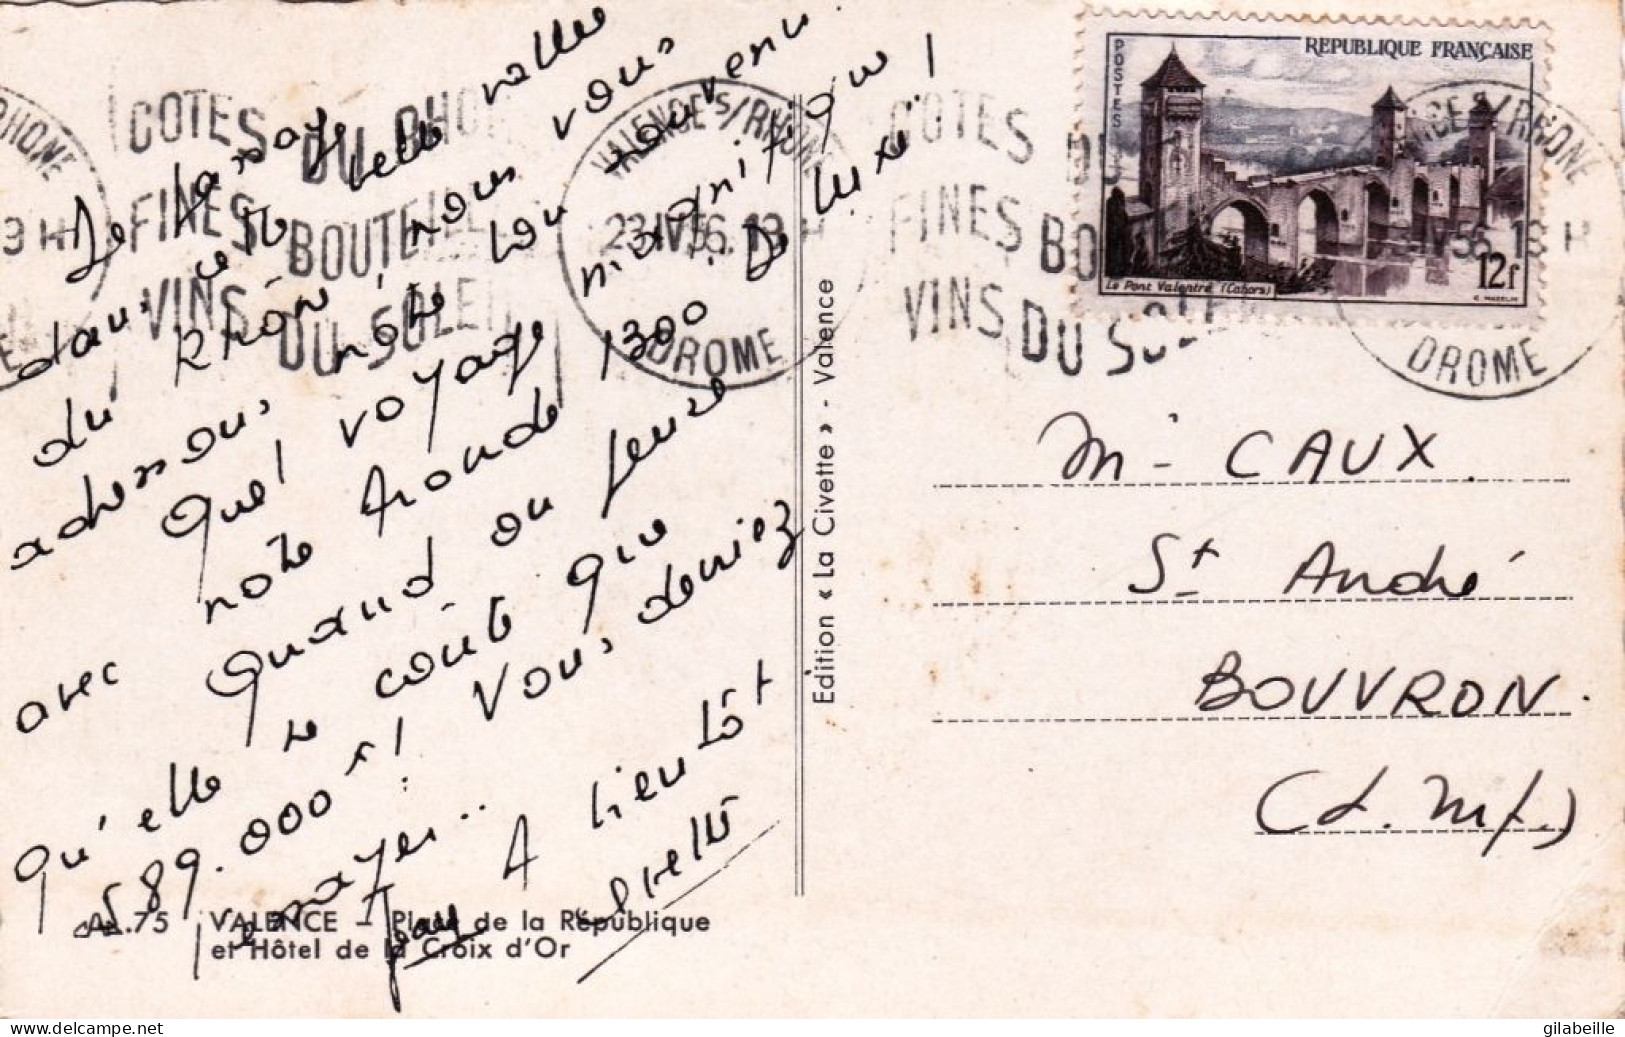 De passage
dans cette belle vallée
du Rhône, nous vous
adressons notre bon souvenir
Quel voyage magnifique
avec notre Aronde 1300 De Luxe !
Quand on pense
qu'elle ne coûte que
589.000 F ! Vous devriez
essayer... A bientôt
A. 75 VALENCE – Place de la République
et Hôtel de la Croix d'Or
Edition « La Civette » - Valence
COTES DU RHONE
FINES BOUTEILLES
VINS DU SOLEIL
VALENCE S/RHONE
23 IV 56. 18 H
DROME
COTES DU
FINES BO
VINS DU SOLEIL
VALENCE S/RHONE
DROME
POSTES
REPUBLIQUE FRANÇAISE
Le Pont Valentré (Cahors)
12f
C. MAZELIN
Mr CAUX
St André
BOUVRON.
(L. Inf.)
www.delcampe.net
gilabeille